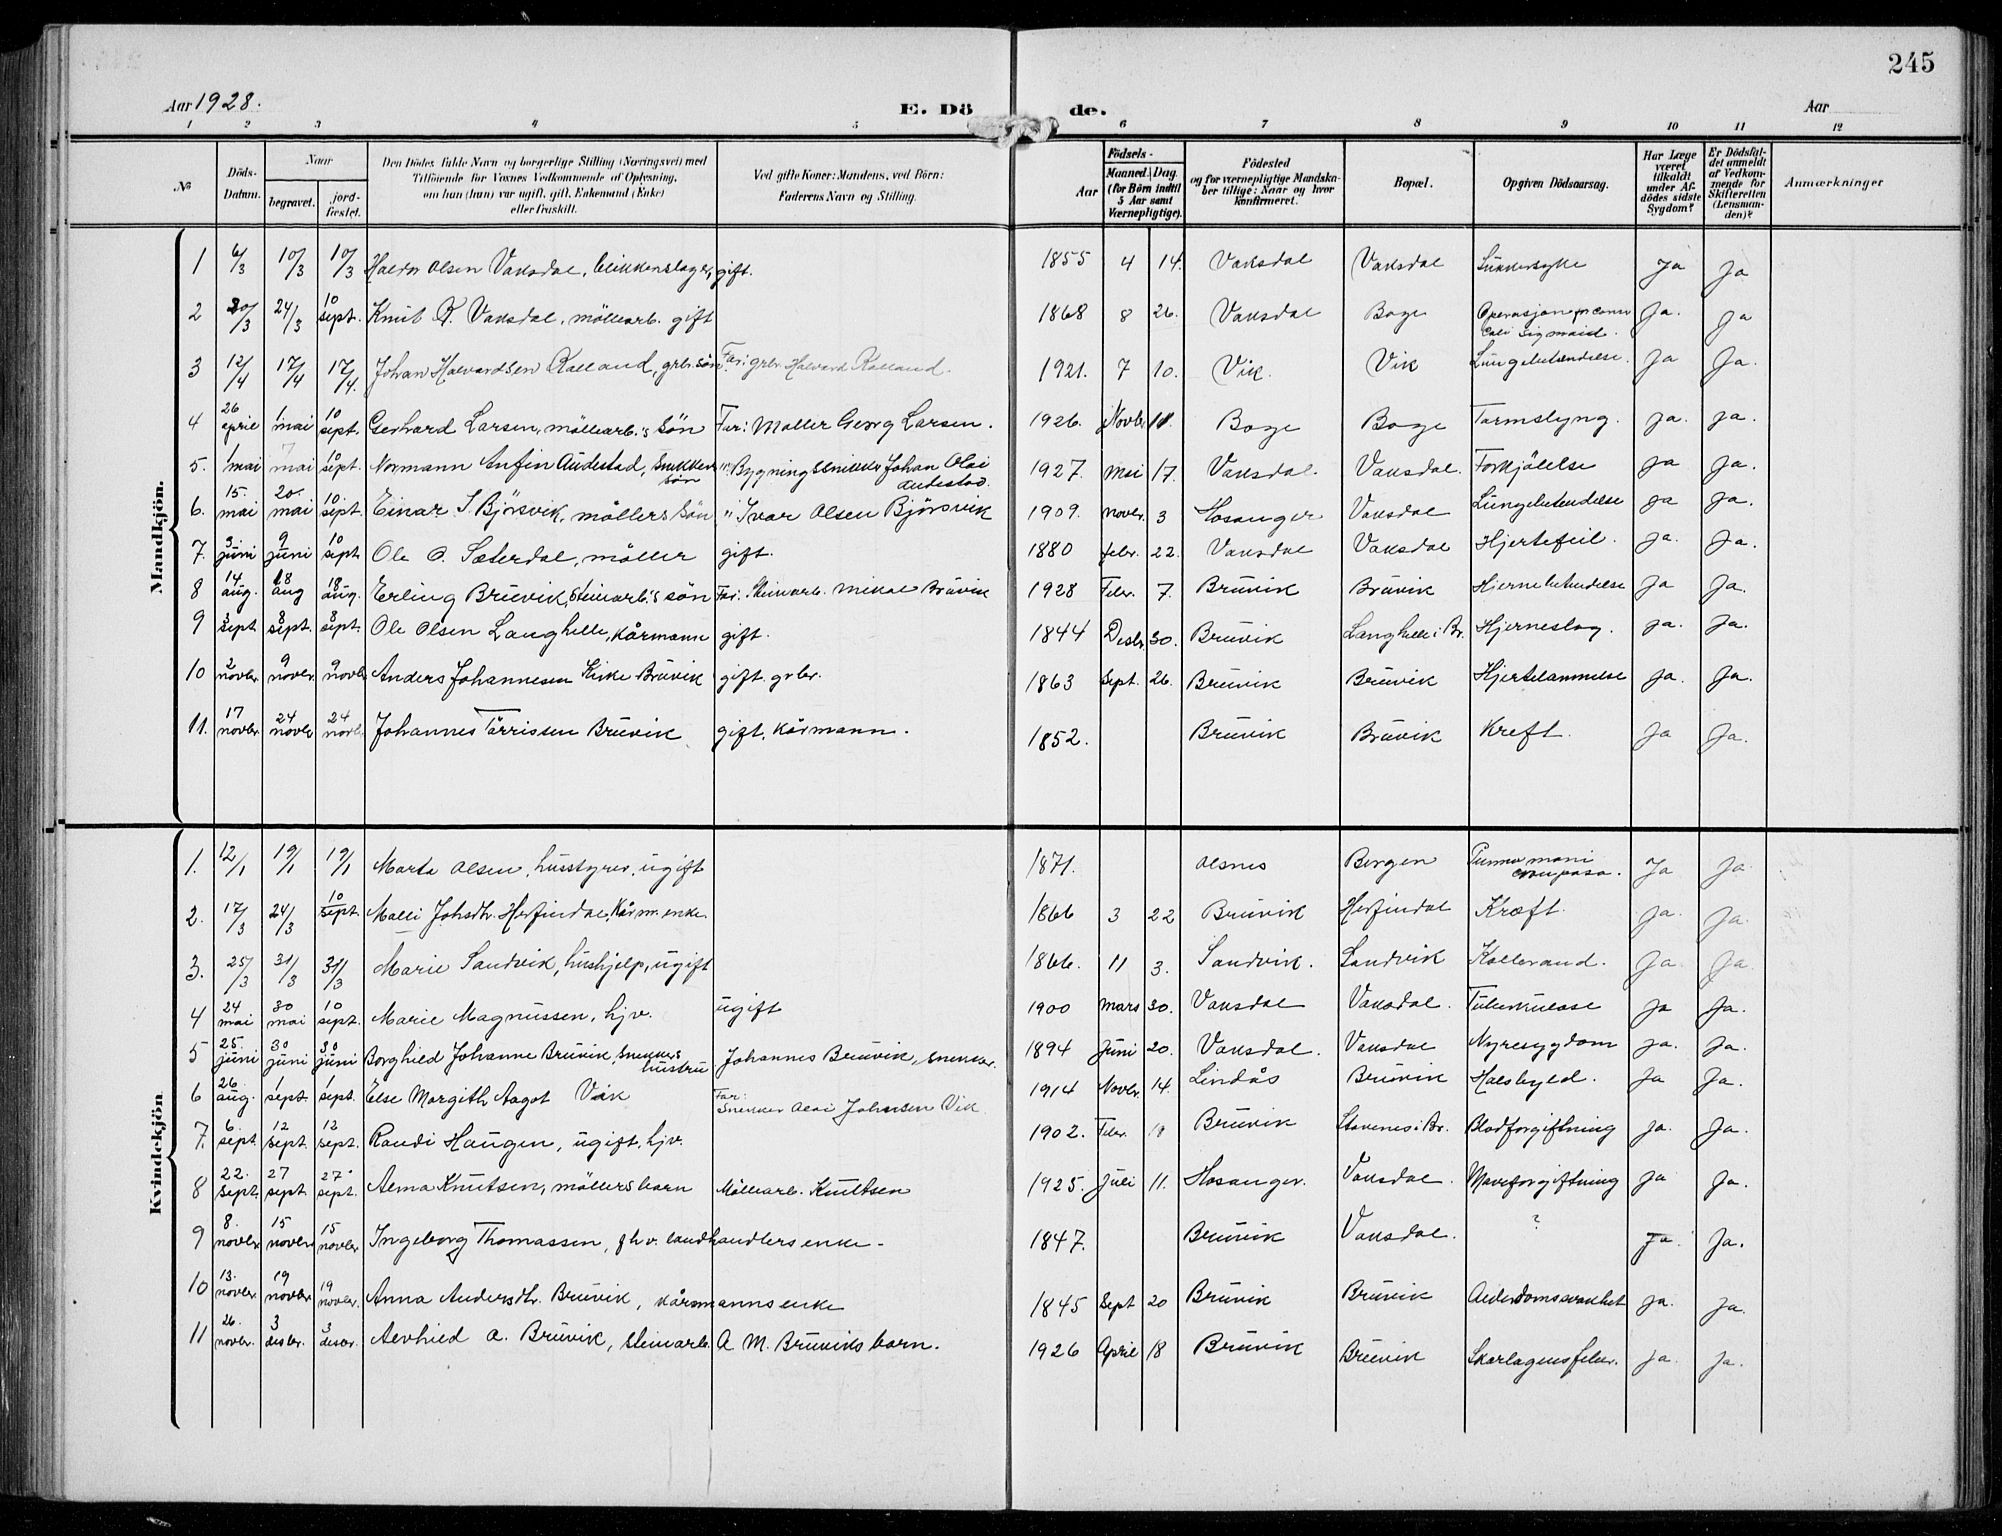 245
Aar 1928. E. Dö de. Aar
1 2 3 4 5 6 7 8 9 10 11 12
№ Döds-Datum. Naar begravet. jordfæstet. Den Dödes fulde Navn og borgerlige Stilling (Næringsvei) med Tilföiende for Voxnes Vedkommende af Oplysning, om han (hun) var ugift, gift, Enkemand (Enke) eller fraskilt. Ved gifte Koner: Mandens, ved Börn: Faderens Navn og Stilling. Aar Födsels- Maaned. Dag. (for Börn indtil 5 Aar samt Værnepligtige). Födested og for værnepligtige Mandskaber tillige: Naar og hvor konfirmeret. Bopæl. Opgiven Dödsaarsag. Har Læge været tilkaldt under Afdödes sidste Sygdom? Er Dödsfaldet anmeldt af Vedkommende for Skifteretten (Lensmanden)? Anmærkninger
Mandkjön.
1 6/3 10/3 10/3 Haldor Olsen Vaksdal, blikkenslager, gift. 1855 4 14. Vaksdal Vaksdal Sukkersyke Ja Ja
2 20/3 24/3 10 sept. Knut K. Vaksdal, möllearb. gift 1868 8 26. Vaksdal Boge Operasjon for Ja. Ja
3 12/4 17/4 17/4. Johan Halvardsen Kalland, grbr. sön. Far: grbr. Halvard Kalland. 1921. 7 10. Vik. Vik Lungebetendelse. Ja Ja.
4 26 april 1 mai 10 sept. Gerhard Larsen, möllearb.'s sön Far: Möller Georg Larsen. 1926. Novbr. 11. Boge Boge Tarmslyng. Ja. Ja.
5. 1 mai 7 mai 10 sept. Normann Anfin Audestad, snekkers sön " Bygningssnikker Johan Olai Audestad. 1927. Mai 17. Vaksdal. Vaksdal. Forkjölelse Ja Ja.
6. 15. mai 20. mai 10 sept. Einar I. Björsvik, möllers sön " Ivar Olsen Björsvik 1909. novbr. 3 Hosanger Vaksdal Lungebetendelse Ja Ja.
7. 3. juni 9 juni 10 sept Ole O. Sæterdal, möller gift. 1880 febr. 22. Vaksdal Vaksdal Hjertefeil. Ja. Ja.
8 14. aug. 18 aug 18 aug. Erling Bruvik, Steinarb.'s sön Far: Steinarb. Mikal Bruvik 1928 Febr. 7. Bruvik Bruvik Hjernebetendelse Ja Ja.
9 3 sept 8 sept. 8 sept. Ole Olsen Langhelle, Kårmann gift. 1844 Desbr. 30. Bruvik Langhelle i Br. Hjerneslag. Ja. Ja.
10 2 novbr. 9 novbr. 9 novbr Anders Johannesen Kirke Bruvik gift. grbr. 1863 Sept. 26. Bruvik Bruvik Hjertelammelse Ja. Ja.
11. 17 novbr. 24 novbr 24 novbr. Johannes Törrissen Bruvik gift, kårmann. 1852. Bruvik Bruvik Kreft. Ja Ja.
Kvindekjön
1. 12/1 19/1 19/1 Marta Olsen, husstyrer, ugift 1871. Alsnes Bergen Ja Ja
2. 17/3 24/3 10 sept. Malli Johsdtr. Herfindal, Kårm. enke. 1866 3 22 Bruvik Herfindal Kræft. Ja. Ja.
3. 25/3 31/3 31/3 Marie Sandvik, hushjelp, ugift 1866. 11 3. Sandvik. Sandvik Kolbrand. Ja. Ja.
4 24 mai 30 mai 10 sept. Marie Magnussen, hjv. ugift 1900 Mars 30. Vaksdal Vaksdal. Tuberkulose Ja Ja.
5 25. juni 30 juni 30 juni Borghild Johanne Bruvik, snekkers hustru Johannes Bruvik, snekker. 1894 Juni 20. Vaksdal. Vaksdal Nyresygdom Ja. Ja.
6 26. aug. 1 sept. 1 sept. Else Margith Aagot Vik Far: Snekker Olai Johnsen Vik. 1914 Novbr. 14. Lindås Bruvik Halsbyld. Ja Ja.
7. 6. sept. 12 sept. 12 sept. Randi Haugen, ugift, hjv. 1902. Febr. Bruvik Stavenes i Br. Blodforgiftning Ja. Ja.
8 22. sept. 27 sept. 27 sept. Alma Knutsen, möllersbarn Möllearb. Knutsen 1925. Juli 11. Hosanger. Vaksdal. Maveforgiftning Ja Ja.
9 8. novbr. 15 novbr. 15 novbr Ingeborg Thomassen, fhv. landhandlers enke. 1847. Bruvik Vaksdal. ? Ja. Ja.
10 13. novbr. 19 novbr. 19 novbr. Anna Andersdtr. Bruvik, kårmanns enke 1845 Sept 20 Bruvik Bruvik Alderdomssvakhet Ja. Ja.
11 26. novbr. 3 desbr. 3 desbr. Alvhild A. Bruvik, steinarb. A. M. Bruviks barn. 1926 April 18 Bruvik Bruvik Skarlagensfeber. Ja. Ja.